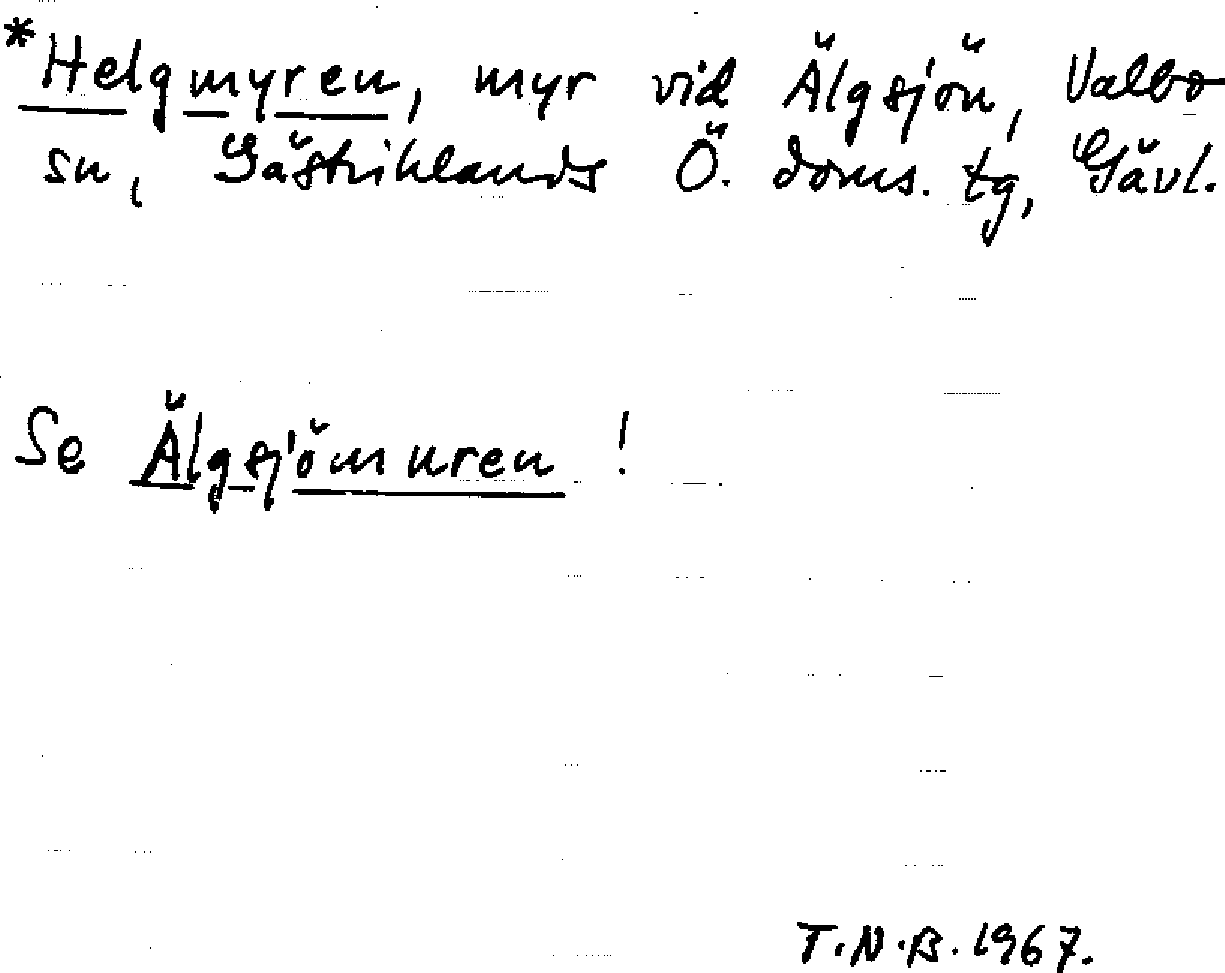 *Helgmyren, myr vid Älgsjön, Valbo
sn, Gästriklands Ö. doms. tg, Gävl.
Se Älgsjömuren !
T.N.B. 1967.